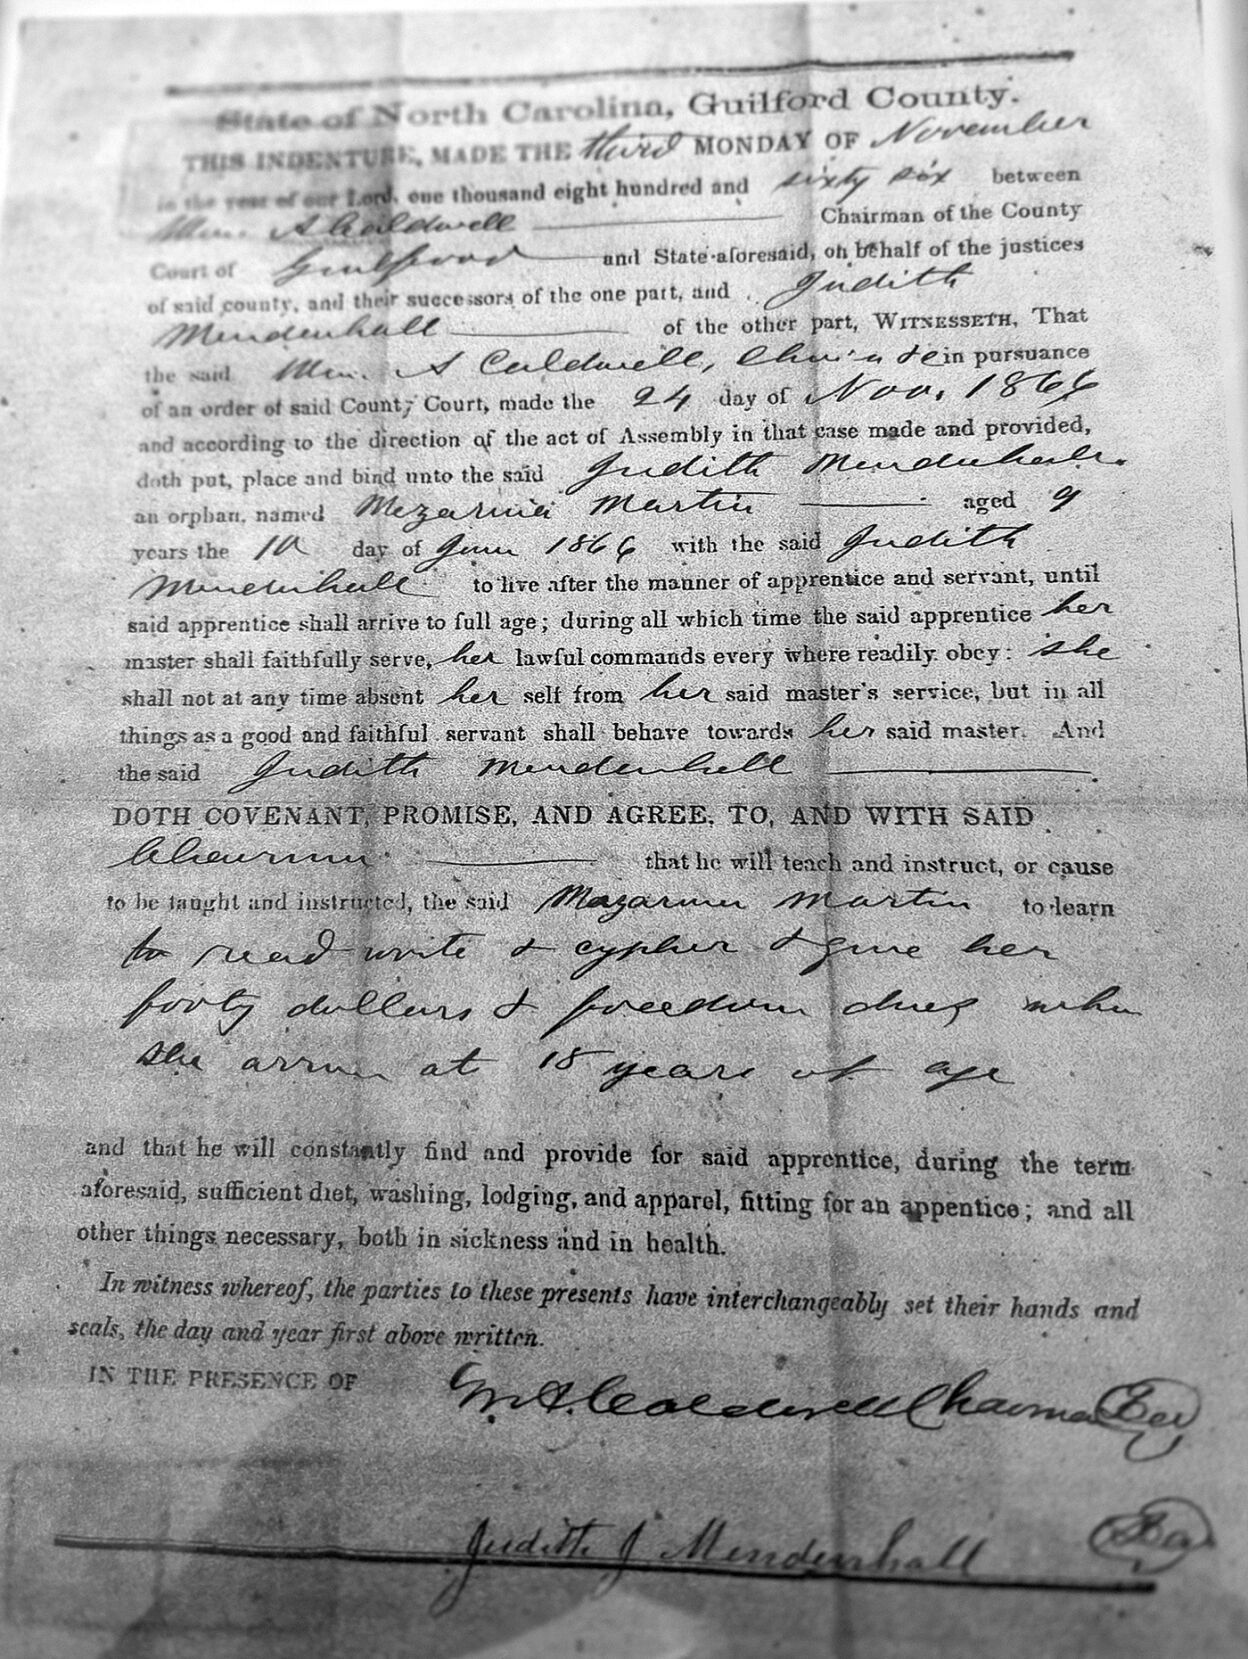 State of North Carolina, Guilford County.
THIS INDENTURE, MADE THE third MONDAY OF November
in the year of our Lord, one thousand eight hundred and sixty six between
Wm. A Caldwell Chairman of the County
Court of Guilford and State aforesaid, on behalf of the justices
of said county, and their successors of the one part, and Judith
Mendenhall of the other part, WITNESSETH, That
the said Wm. A Caldwell, in pursuance
of an order of said County Court, made the 24 day of Nov. 1866
and according to the direction of the act of Assembly in that case made and provided,
doth put, place and bind unto the said Judith Mendenhall.
an orphan, named Mezarina Martin aged 9
years the 10 day of June 1866 with the said Judith
Mendenhall to live after the manner of apprentice and servant, until
said apprentice shall arrive to full age; during all which time the said apprentice her
master shall faithfully serve, her lawful commands every where readily obey: she
shall not at any time absent her self from her said master's service, but in all
things as a good and faithful servant shall behave towards her said master. And
the said Judith Mendenhall
DOTH COVENANT, PROMISE, AND AGREE, TO, AND WITH SAID
Chairman that he will teach and instruct, or cause
to be taught and instructed, the said Mazarina Martin to learn
to read write & cypher & give her
forty dollars & freedom dues when
she arrives at 18 years of age
and that he will constantly find and provide for said apprentice, during the term
aforesaid, sufficient diet, washing, lodging, and apparel, fitting for an appentice; and all
other things necessary, both in sickness and in health.
In witness whereof, the parties to these presents have interchangeably set their hands and
seals, the day and year first above written.
IN THE PRESENCE OF
Wm. A. Caldwell Chairman
Judith J Mendenhall